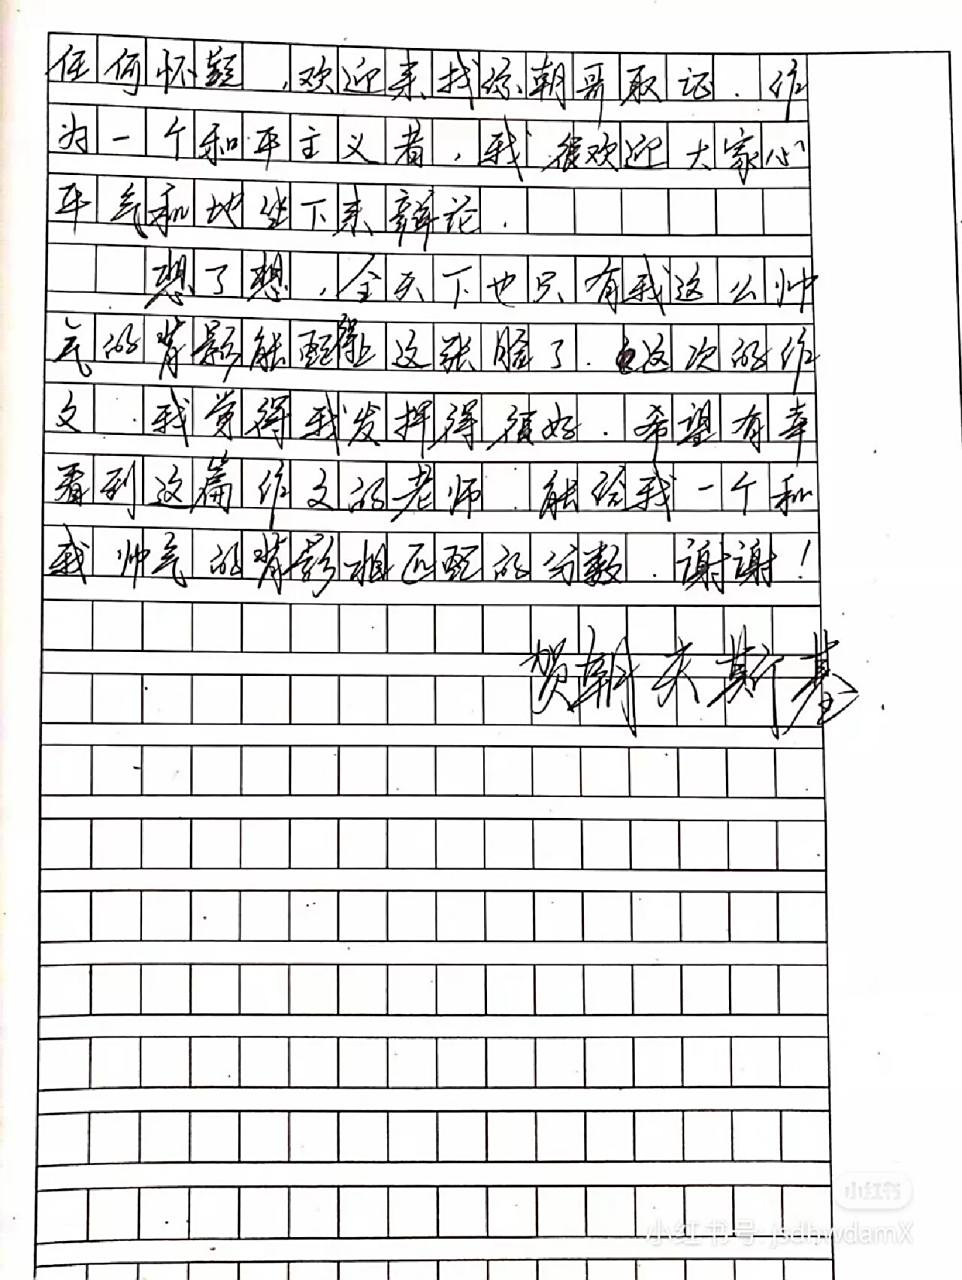 任何怀疑，欢迎来找你朝哥取证．作
为一个和平主义者，我很欢迎大家心
平气和地坐下来辩论．
想了想，全天下也只有我这么帅
气的背影能配得上这张脸了．这次的作
文．我觉得我发挥得很好．希望有幸
看到这篇作文的老师．能给我一个和
我帅气的背影相匹配的分数．谢谢！
贺朝夫斯基
小红书
小红书号: jsdhwdamX